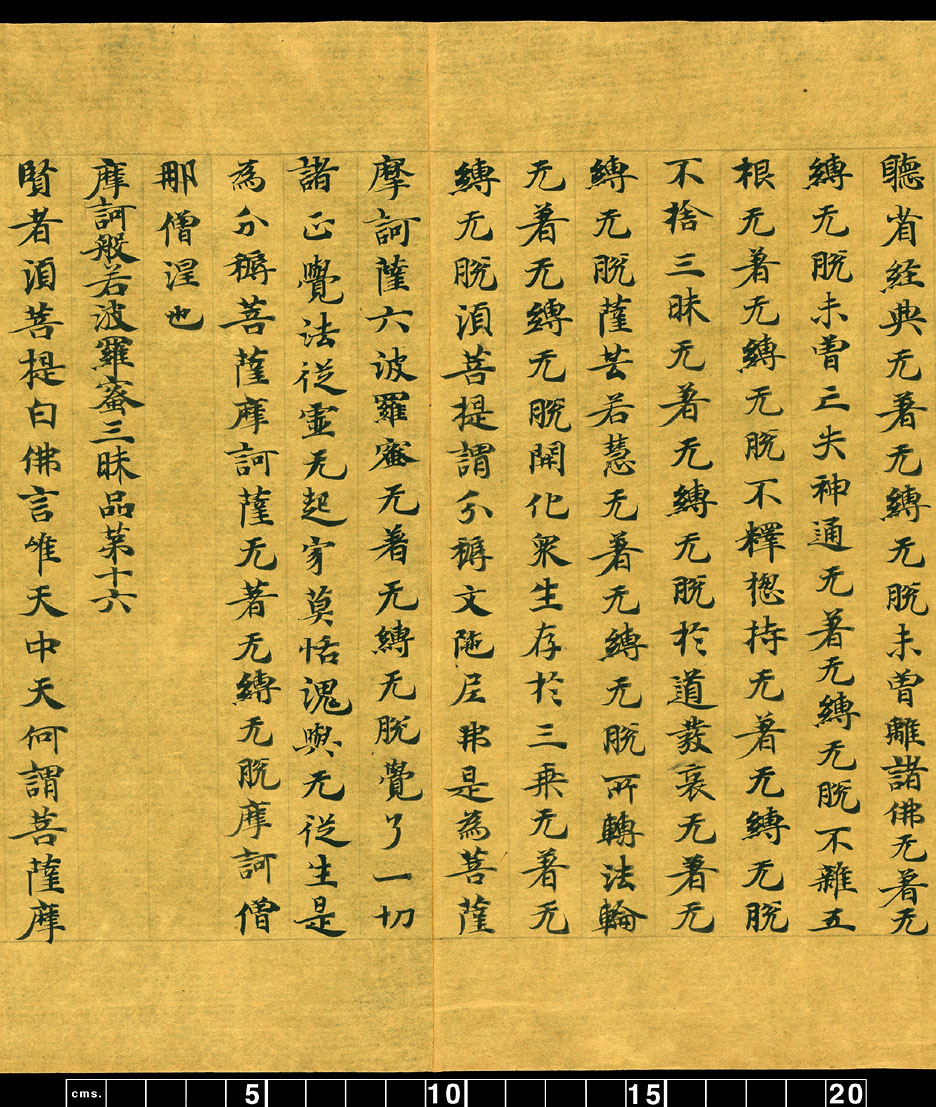 聽省經典无著无縛无脫未曾離諸佛无著无
縛无脫未曾亡失神通无著无縛无脫不離五
根无著无縛无脫不釋揔持无著无縛无脫
不捨三昧无著无縛无脫於道葉哀无著无
縛无脫薩芸若慧无著无縛无脫所轉法輪
无著无縛无脫開化衆生存於三乗无著无
縛无脫湏菩提謂分耨文陁尼弗是為菩薩
摩訶薩六波羅蜜无著无縛无脫覺了一切
諸正覺法從靈无起家莫恬愧與无從生是
為分耨菩薩摩訶薩无著无縛无脫摩訶僧
那僧涅也
摩訶般若波羅蜜三昧品第十六
賢者湏菩提白佛言唯天中天何謂菩薩摩